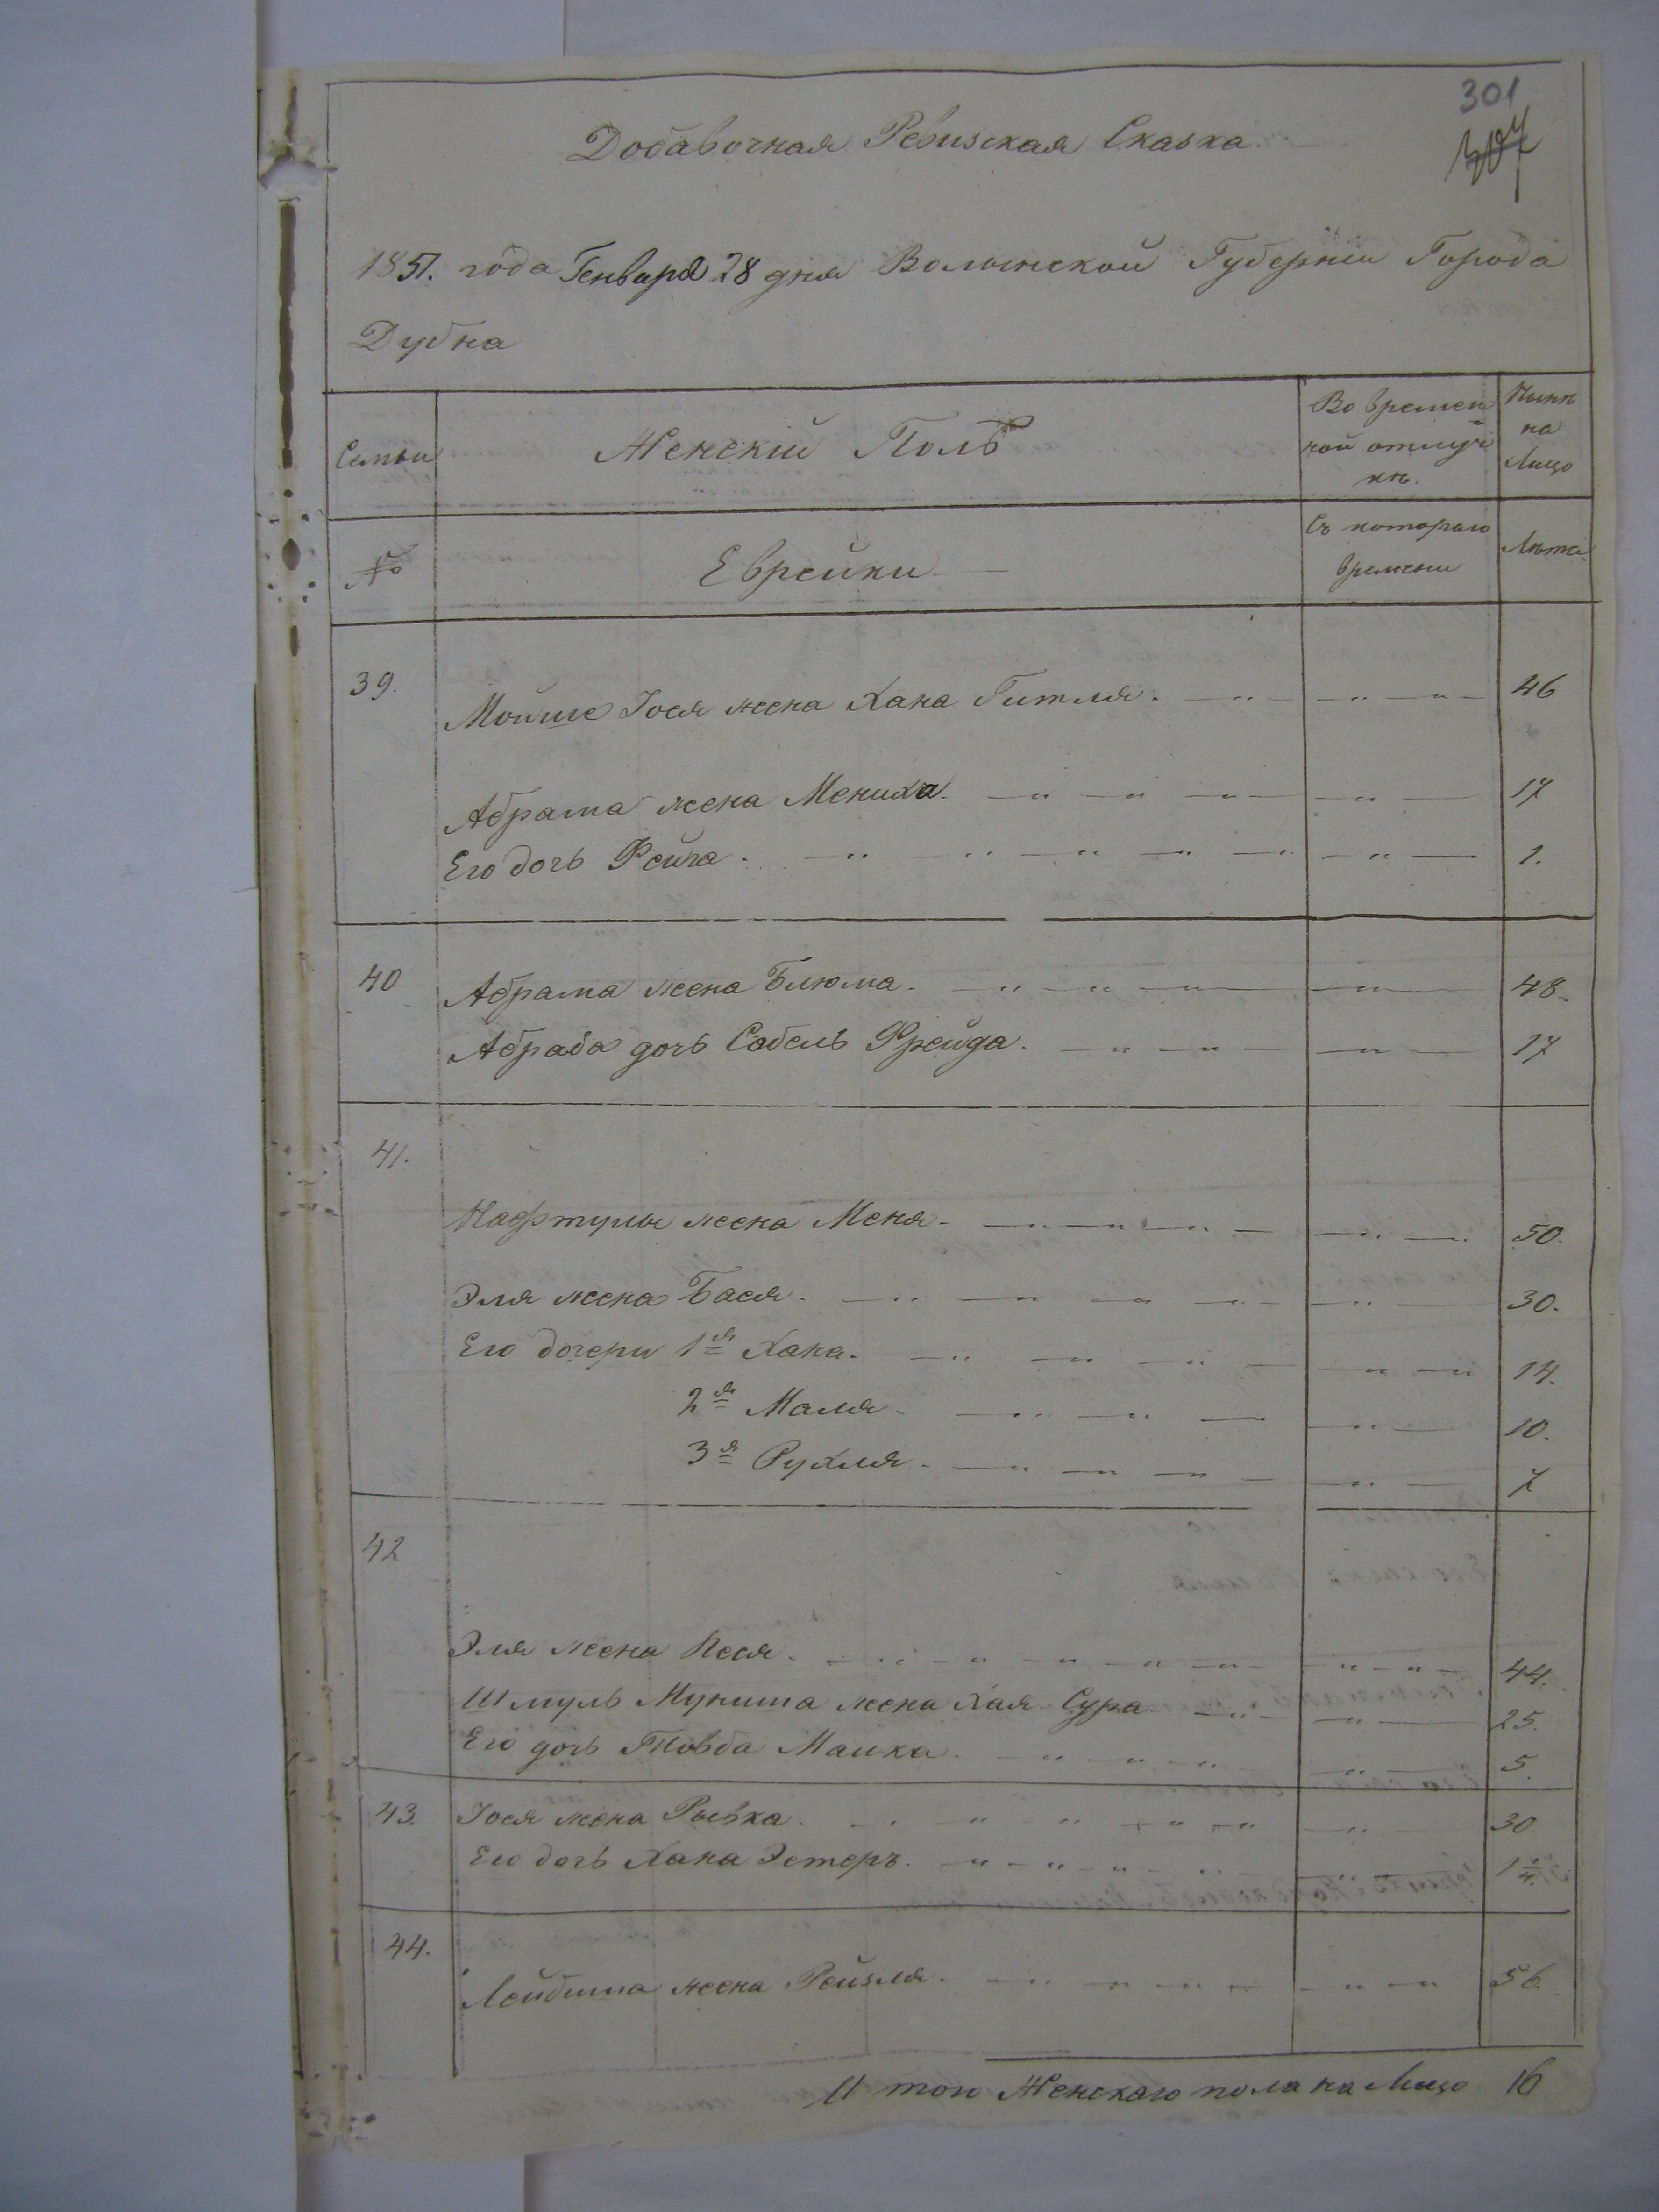 301
Добавочная Ревизская Сказка
1851. года Генваря 28 дня Волынской Губерніи Города
Дубна
Семьи
Женскій Полъ
Во времен
ной отлуч
кѣ.
Нынѣ
на
Лицо
№
Еврейки
Съ котораго
времени
Лѣта
39.
Мойше Іося жена Хана Гитля. 46
Абрама жена Мениха. 17
Его дочь Фейга. 1.
40 Абрама жена Блюма. 48.
дочь Собель Фрейда. 17
41.
Нафтулы жена Меня. 50.
Эля жена Бася. 30.
Его дочери 1я Хана. 14.
2я Маля 10.
3я Рухля. 7
42
Эля жена Песя. 44.
Шмуль Муниша жена Хая Сура 25.
Его дочь Товба Малка. 5.
43. Іося жена Рывка. 30
Его дочь Хана Эстеръ. 1
44.
Лейбиша жена Рейзля. 56.
И того Женскаго пола на Лицо 16